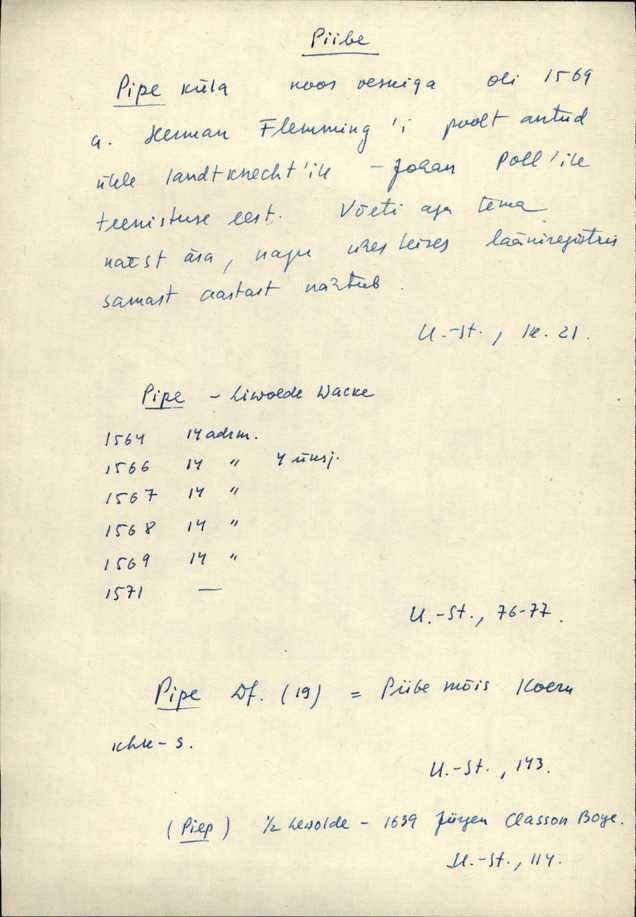 Piibe
Pipe küla koos veskiga oli 1569
a. Herman Flemming'i poolt antud
ühele landtknecht'ile - Johan Poll'ile
teenistuse eest. Võeti aga tema
käest ära, nagu ühes teises lääniregistris
samast aastast nähtub.
U.-St., lk. 21.
Pipe - Liwolde Wacke
1564 14 adrm.
1566 14 " 4 üksj.
1567 14 "
1568 14 "
1569 14 "
1571 —
U.-St., 76-77.
Pipe Df. (19) = Piibe mõis Koeru
khk-s.
U.-St., 143.
(Piep) 1/2 Lewolde - 1639 Jürgen Classon Boye.
U.-St., 114.